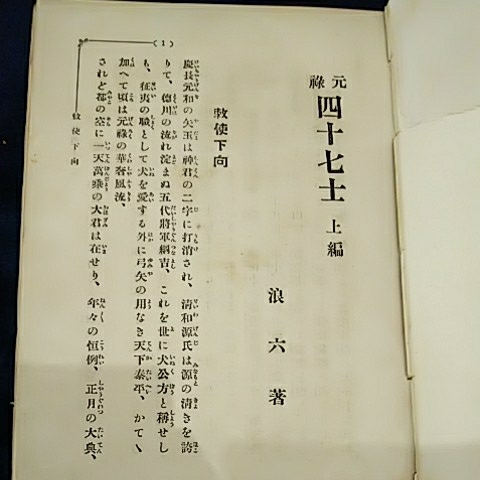 元祿 四十七士 上編
浪六著
勅使下向
慶長元和の矢玉は神君の二字に打消され、清和源氏は源の清きを誇
りて、德川の流れ淀まぬ五代將軍綱吉、これを世に犬公方と稱せし
も、征夷の職として犬を愛する外に弓矢の用なき天下泰平、かてゝ
加へて頃は元祿の華奢風流、
されど都の空に一天萬乘の大君は在せり、年々の恒例、正月の大典、
(1)
勅使下向